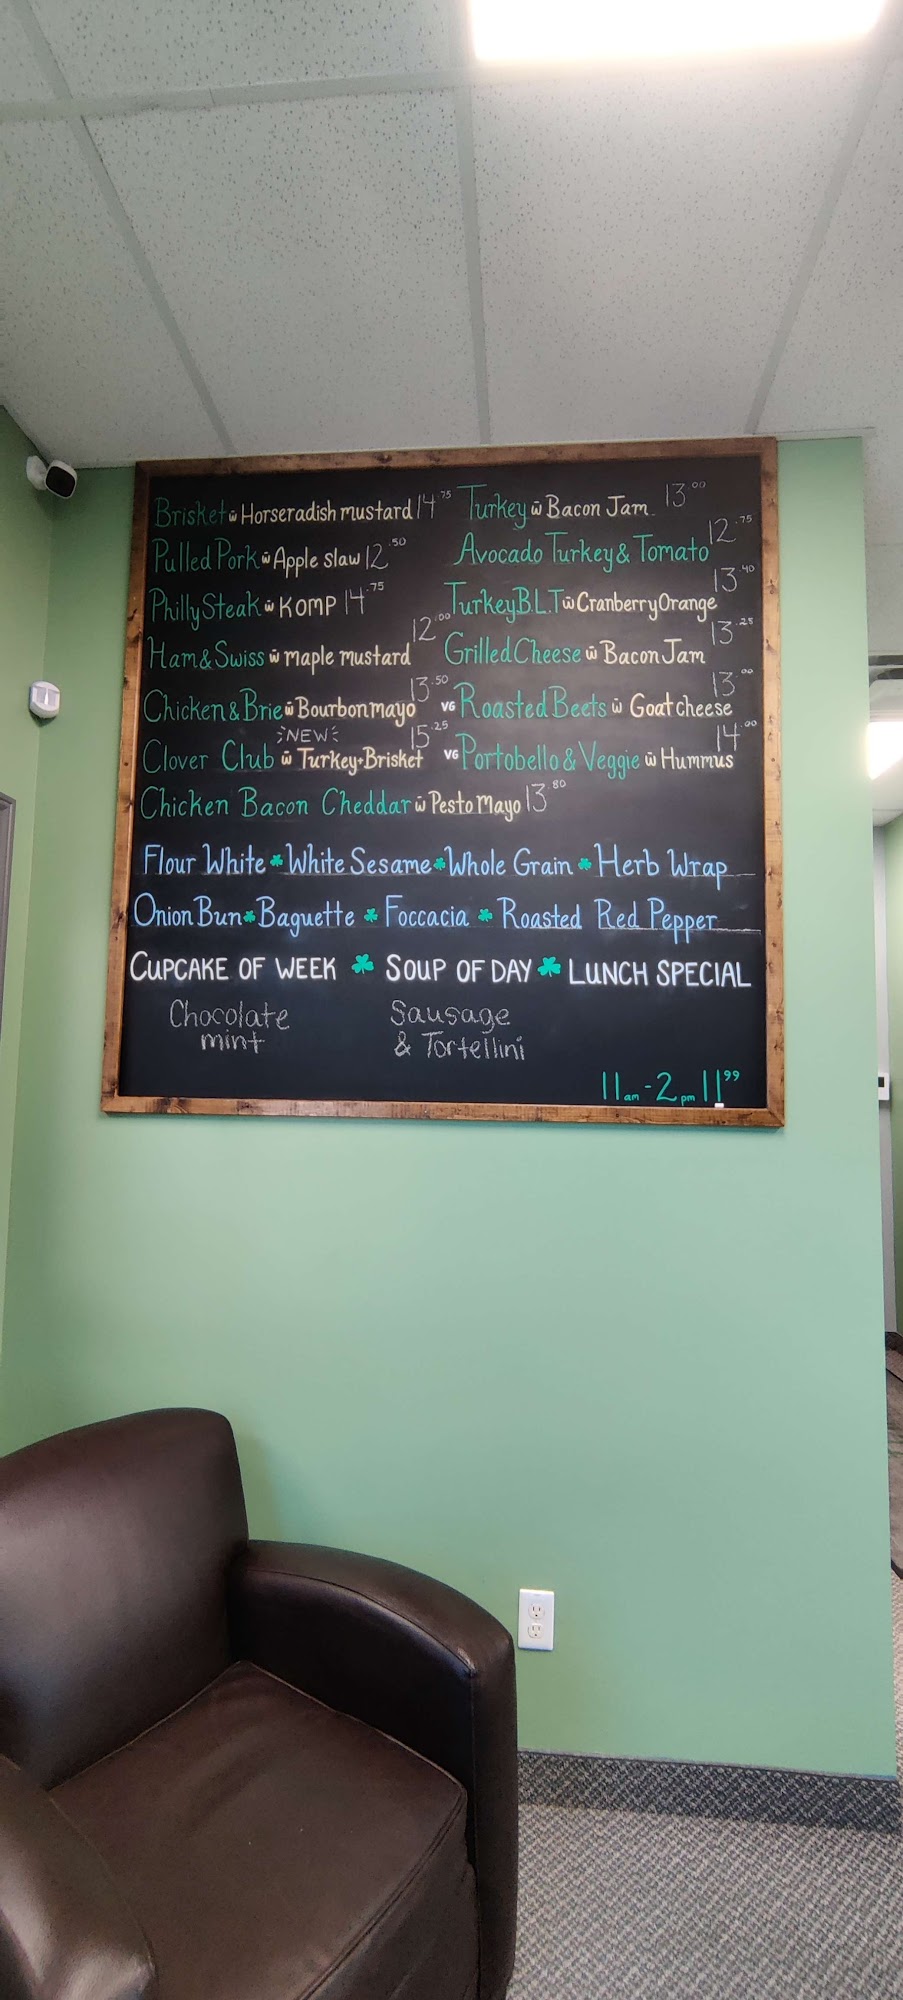 Brisket w̄ Horseradish mustard 14.75
Pulled Pork w̄ Apple slaw 12.50
Philly Steak w̄ KOMP 14.75
Ham & Swiss w̄ maple mustard 12.00
Chicken & Brie w̄ Bourbon mayo 13.50
NEW
Clover Club w̄ Turkey + Brisket 15.25
Chicken Bacon Cheddar w̄ Pesto Mayo 13.80
Turkey w̄ Bacon Jam 13.00
Avocado Turkey & Tomato 12.75
Turkey B.L.T w̄ Cranberry Orange 13.40
Grilled Cheese w̄ Bacon Jam 13.25
VG Roasted Beets w̄ Goat cheese 13.00
VG Portobello & Veggie w̄ Hummus 14.00
Flour White ☘ White Sesame ☘ Whole Grain ☘ Herb Wrap
Onion Bun ☘ Baguette ☘ Foccacia ☘ Roasted Red Pepper
CUPCAKE OF WEEK ☘ SOUP OF DAY ☘ LUNCH SPECIAL
Chocolate
mint
Sausage
& Tortellini
11am - 2pm 11.99